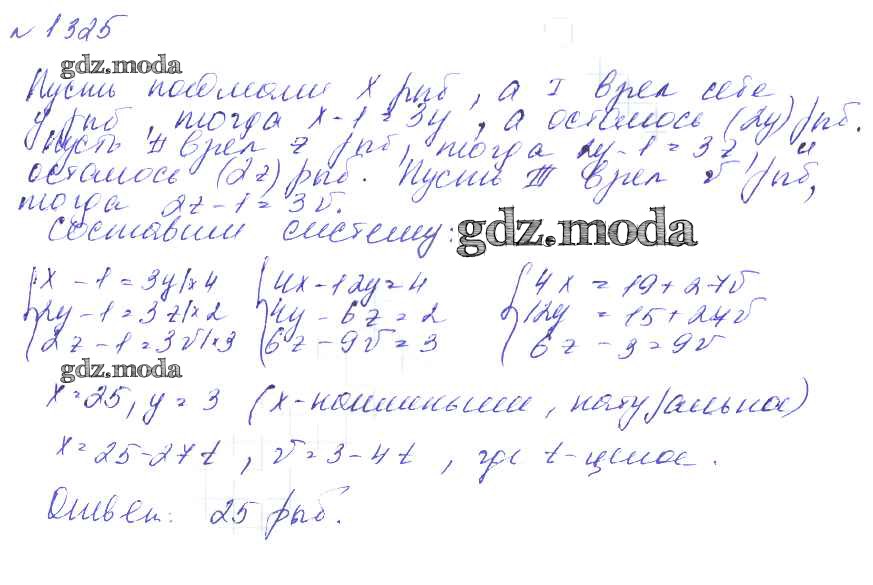 № 1325
gdz.moda
Пусть поймали x рыб, а I взял себе
y рыб, тогда x - 1 = 3y, а осталось (2y) рыб.
Пусть II взял z рыб, тогда 2y - 1 = 3z, и
осталось (2z) рыб. Пусть III взял v рыб,
тогда 2z - 1 = 3v.
Составим систему:
gdz.moda
{x - 1 = 3y |×4 {4x - 12y = 4 {4x = 19 + 27v
{2y - 1 = 3z |×2 {4y - 6z = 2 {12y = 15 + 27v
{2z - 1 = 3v |×3 {6z - 9v = 3 {6z - 3 = 9v
gdz.moda
x = 25, y = 3 (x - наименьшим, натуральное)
x = 25 - 27t, v = 3 - 4t, где t - целое.
Ответ: 25 рыб.